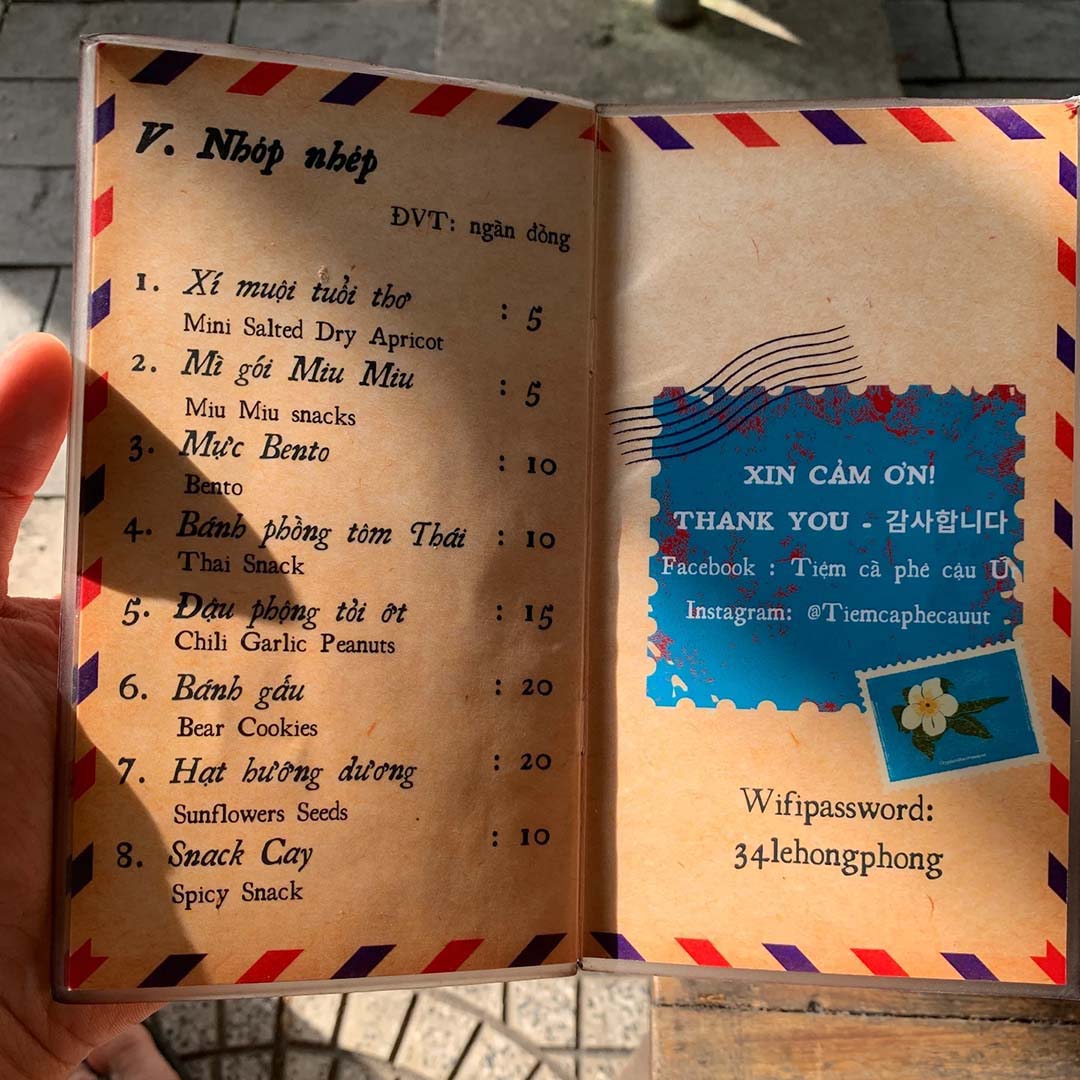 V. Nhóp nhép
ĐVT: ngàn đồng
1. Xí muội tuổi thơ : 5
Mini Salted Dry Apricot
2. Mì gói Miu Miu : 5
Miu Miu snacks
3. Mực Bento : 10
Bento
4. Bánh phồng tôm Thái : 10
Thai Snack
5. Đậu phộng tỏi ớt : 15
Chili Garlic Peanuts
6. Bánh gấu : 20
Bear Cookies
7. Hạt hướng dương : 20
Sunflowers Seeds
8. Snack Cay : 10
Spicy Snack
XIN CẢM ƠN!
THANK YOU - 감사합니다
Facebook : Tiệm cà phê cậu Út
Instagram: @Tiemcaphecauut
Wifipassword:
34lehongphong